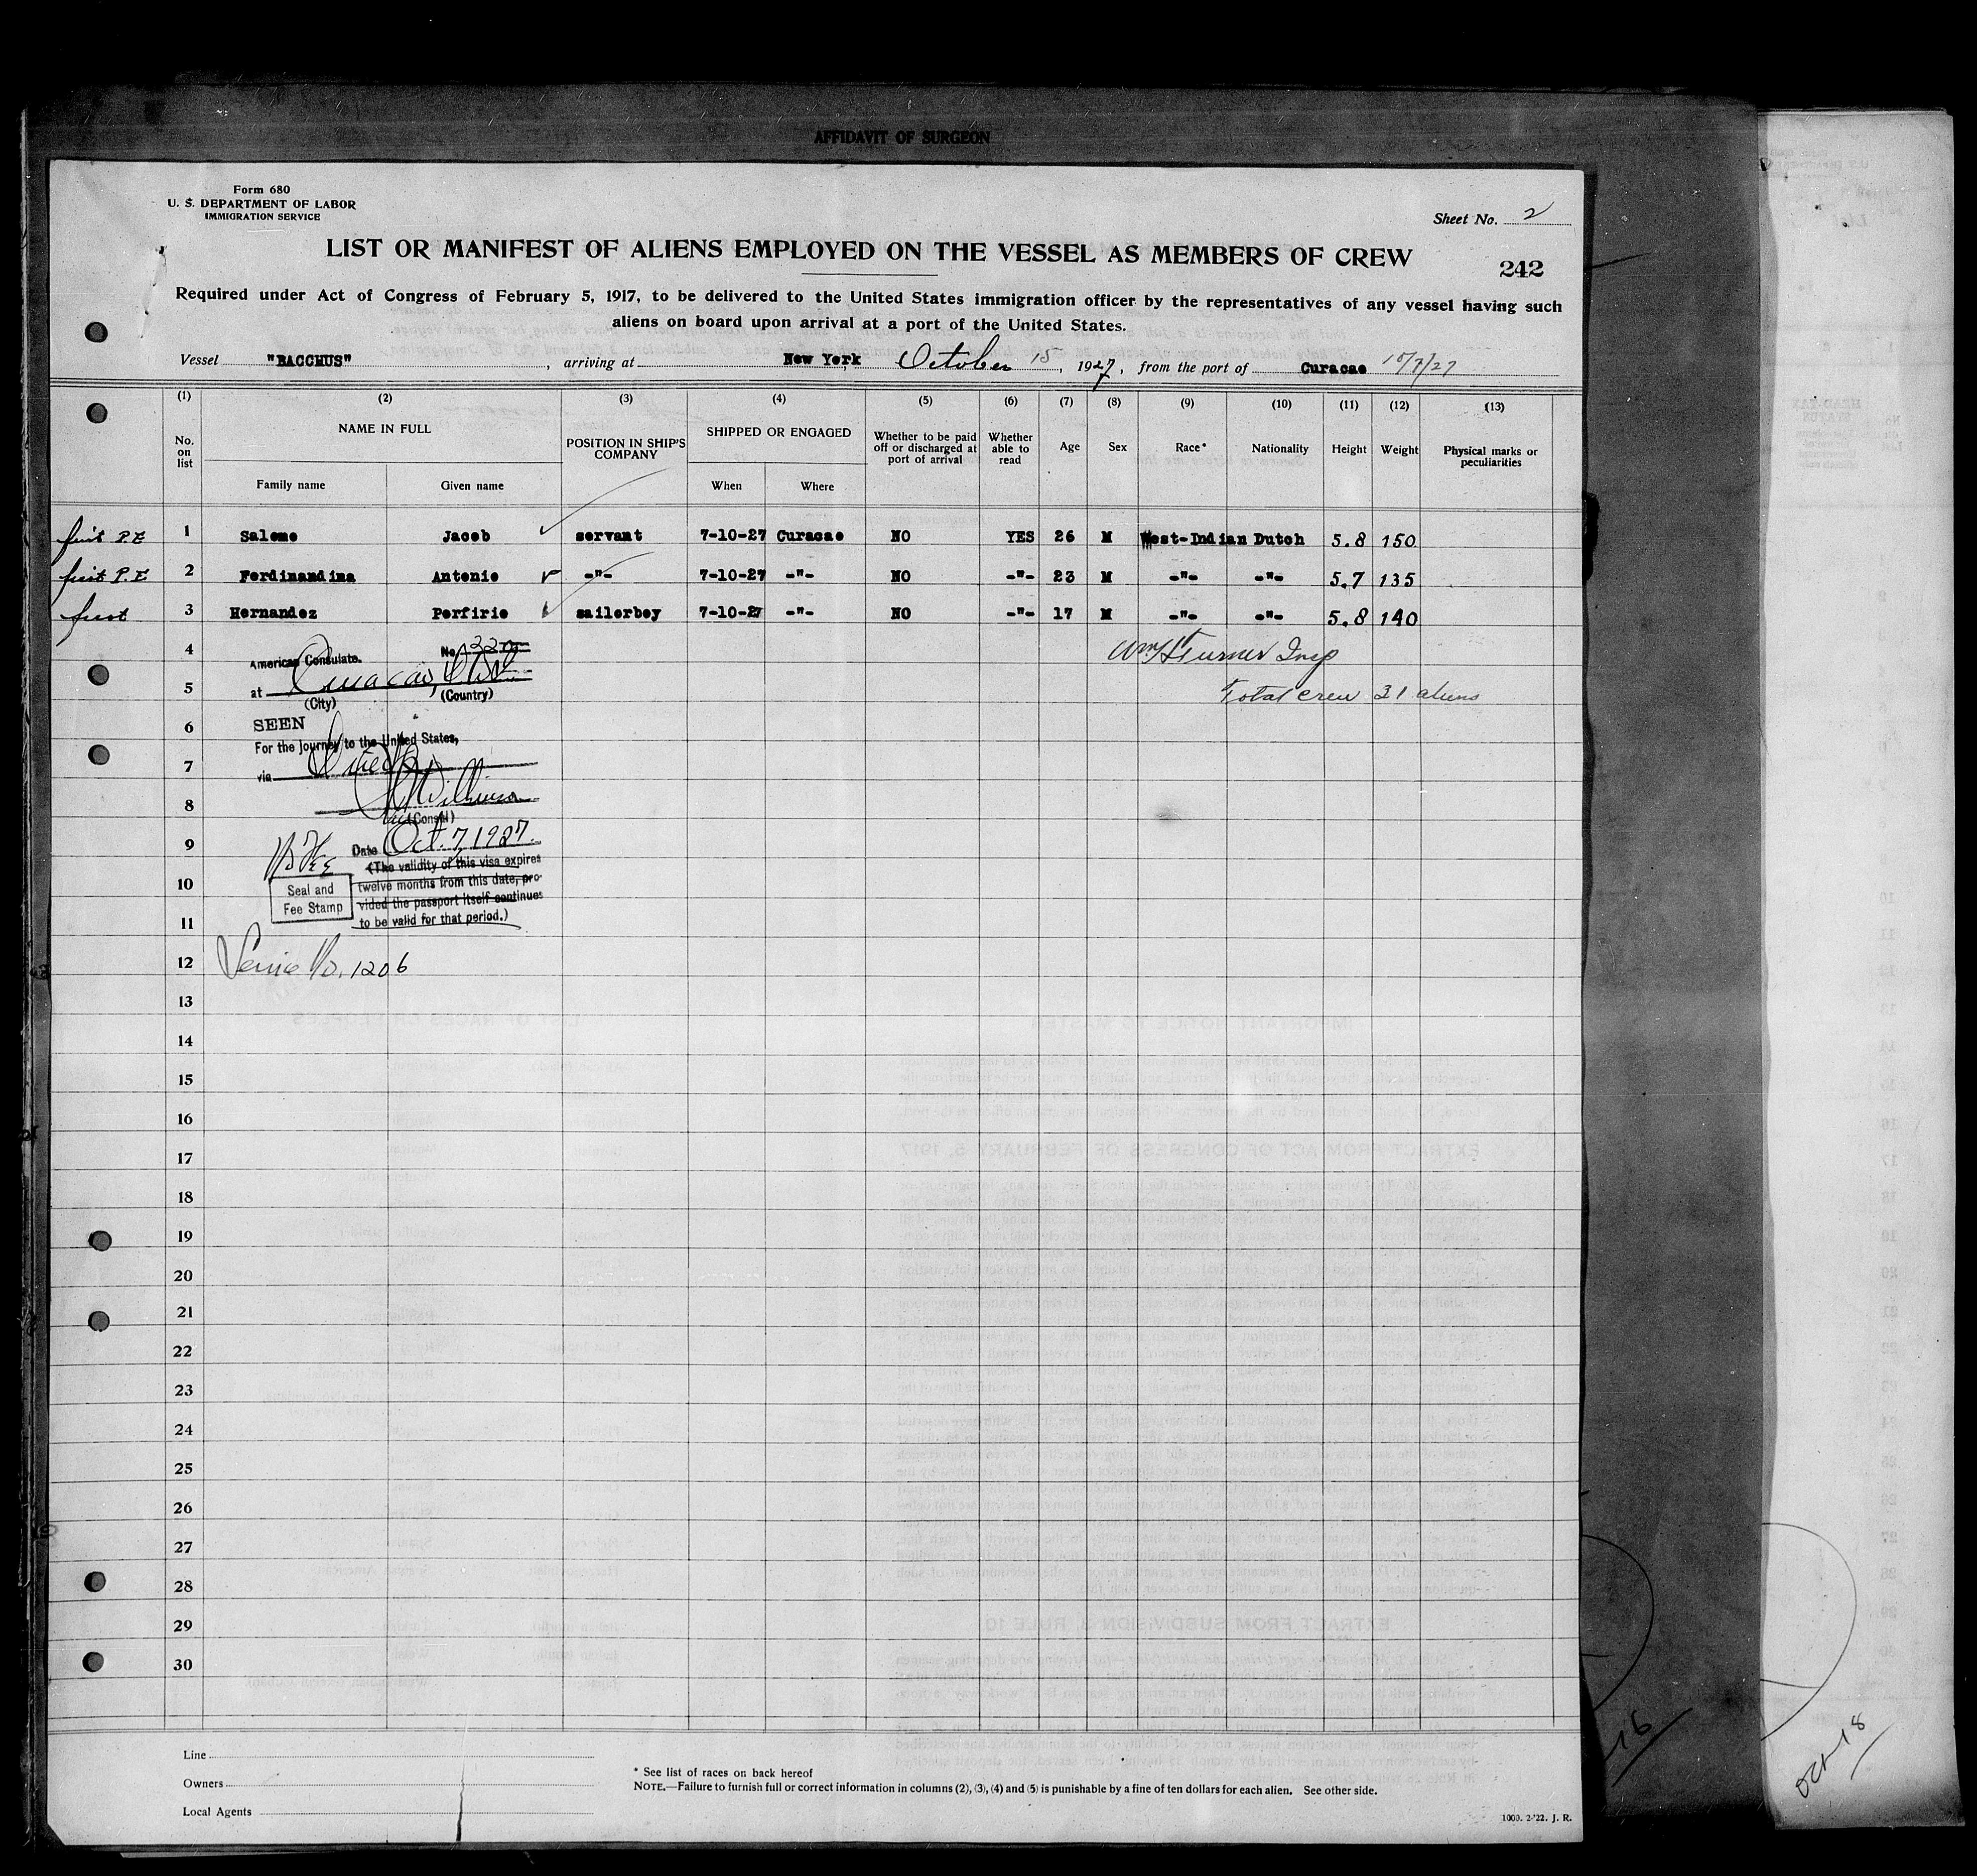 AFFIDAVIT OF SURGEON
Form 680
U. S. DEPARTMENT OF LABOR
IMMIGRATION SERVICE
Sheet No. 2
LIST OR MANIFEST OF ALIENS EMPLOYED ON THE VESSEL AS MEMBERS OF CREW
242
Required under Act of Congress of February 5, 1917, to be delivered to the United States immigration officer by the representatives of any vessel having such
aliens on board upon arrival at a port of the United States.
Vessel "BACCHUS", arriving at New York October 15, 1927, from the port of Curacao 10/7/27
(1) (2) (3) (4) (5) (6) (7) (8) (9) (10) (11) (12) (13)
No. on list NAME IN FULL POSITION IN SHIP'S COMPANY SHIPPED OR ENGAGED Whether to be paid off or discharged at port of arrival Whether able to read Age Sex Race* Nationality Height Weight Physical marks or peculiarities
Family name Given name When Where
first P.E 1 Salome Jacob servant 7-10-27 Curacao NO YES 26 M West-Indian Dutch 5.8 150
first P.E 2 Ferdinandina Antonio -"- 7-10-27 -"- NO -"- 23 M -"- -"- 5.7 135
first 3 Hernandez Perfirie sailerboy 7-10-27 -"- NO -"- 17 M -"- -"- 5.8 140
4 American Consulate. No. Wm H Turner Insp
5 at Curacao, (City) (Country) Total crew 31 aliens
6 SEEN
For the Journey to the United States,
7 via Direct
8
(Consul)
9 Date Oct. 7, 1927.
No Fee
(The validity of this visa expires
10 Seal and twelve months from this date, pro-
Fee Stamp vided the passport itself continues
11 to be valid for that period.)
12 Service No. 1206
13
14
15
16
17
18
19
20
21
22
23
24
25
26
27
28
29
30
Line
Owners
Local Agents
* See list of races on back hereof
NOTE.—Failure to furnish full or correct information in columns (2), (3), (4) and (5) is punishable by a fine of ten dollars for each alien. See other side.
1000. 2-'22. J. R.
16
Oct-18